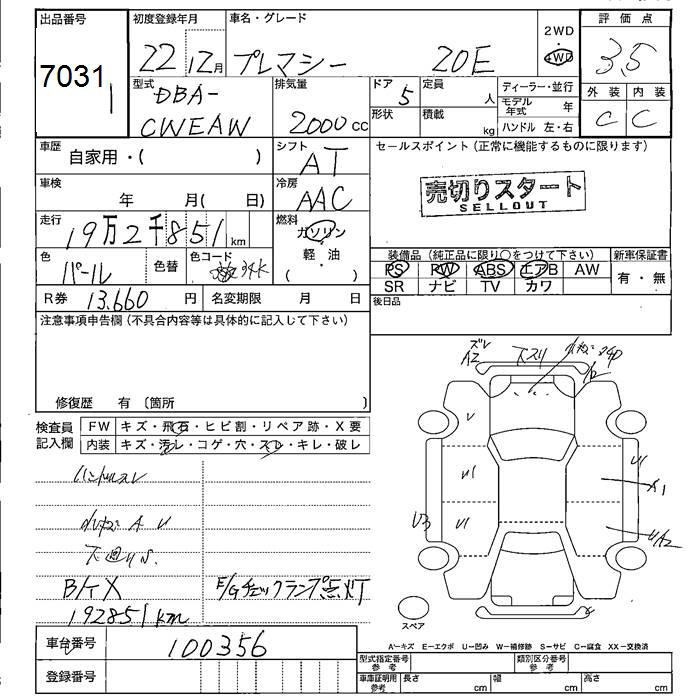 出品番号
7031
初度登録年月
22年12月
車名・グレード
プレマシー 20E
2WD
4WD
評価点
3.5
外装 内装
C C
型式
DBA-
CWEAW
排気量
2000 cc
ドア 5
形状
定員 人
積載 kg
ディーラー・並行
モデル年式 年
ハンドル 左・右
車歴
自家用・( )
シフト
AT
セールスポイント(正常に機能するものに限ります)
売切りスタート
SELLOUT
車検
年 月( 日)
冷房
AAC
走行
19万2千851km
燃料
ガソリン
軽・油
( )
色
パール
色替
色コード
34K
装備品(純正品に限り○をつけて下さい)
新車保証書
PS PW ABS エアB AW
SR ナビ TV カワ
有・無
R券 13,660 円
名変期限 月 日
後日品
注意事項申告欄(不具合内容等は具体的に記入して下さい)
修復歴 有〔箇所 〕
検査員
記入欄
FW キズ・飛石・ヒビ割・リペア跡・X要
内装 キズ・汚レ・コゲ・穴・スレ・キレ・破レ
ハンドルスレ
A U
下廻りS.
B/T X
E/Gチェックランプ点灯
192851km
ズレ
A2
U
U1
U1
U3
U1
A1
UA2
スペア
車台番号
100356
登録番号
A-キズ E-エクボ U-凹み W-補修跡 S-サビ C-腐食 XX-交換済
型式指定番号
参考
類別区分番号
参考
車庫証明用
参考
長さ cm
幅 cm
高さ cm